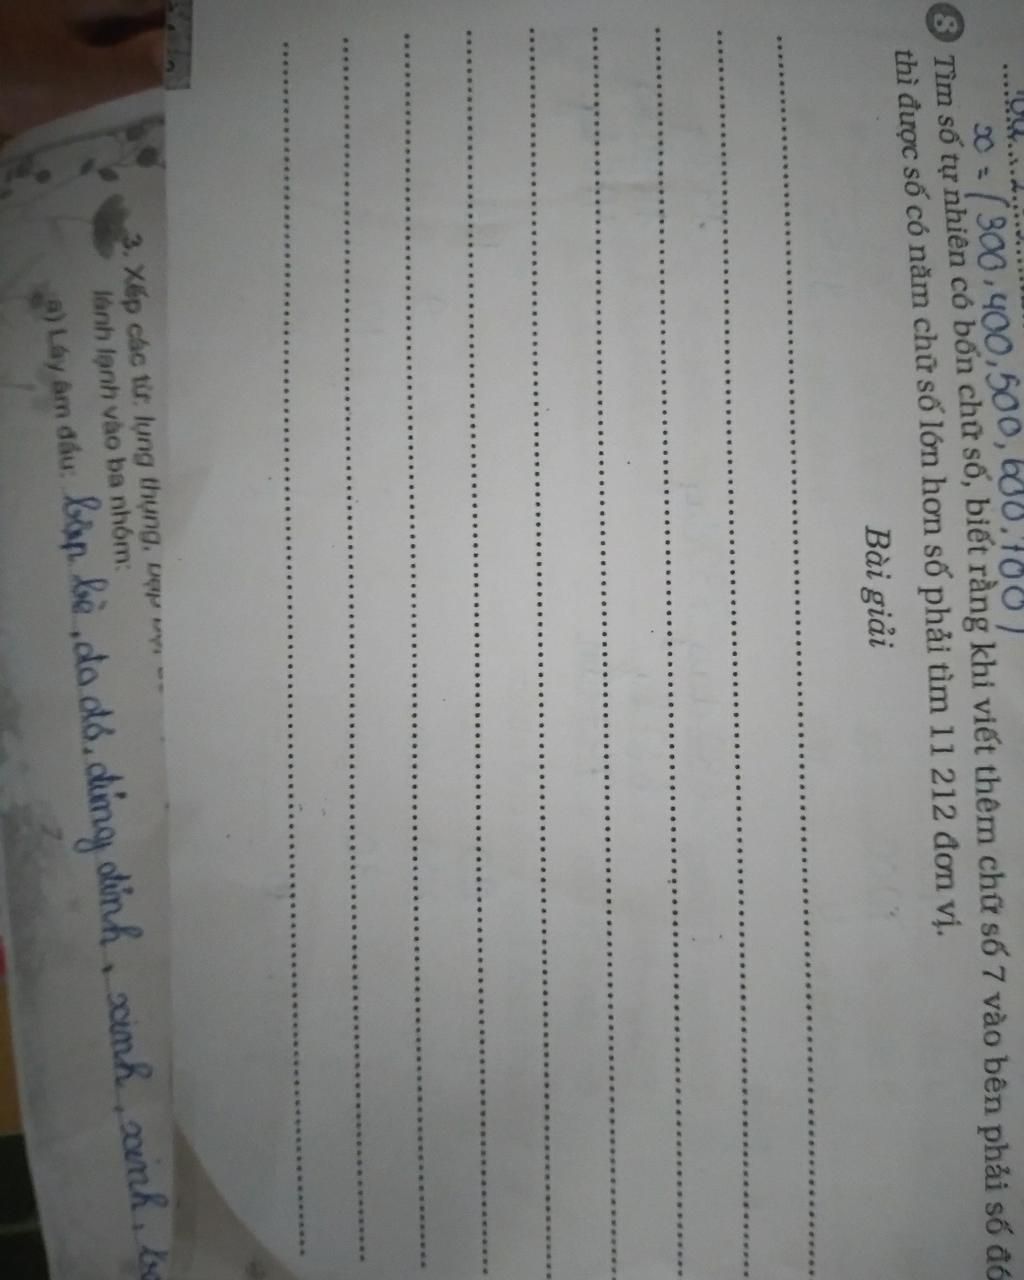 x = (300, 400, 500, 600, 700)
8 Tìm số tự nhiên có bốn chữ số, biết rằng khi viết thêm chữ số 7 vào bên phải số đó
thì được số có năm chữ số lớn hơn số phải tìm 11 212 đơn vị.
Bài giải
3. Xếp các từ: lụng thụng,
lành lạnh vào ba nhóm:
a) Láy âm đầu: bập bè, da dẻ, dủng dỉnh, xinh xinh,